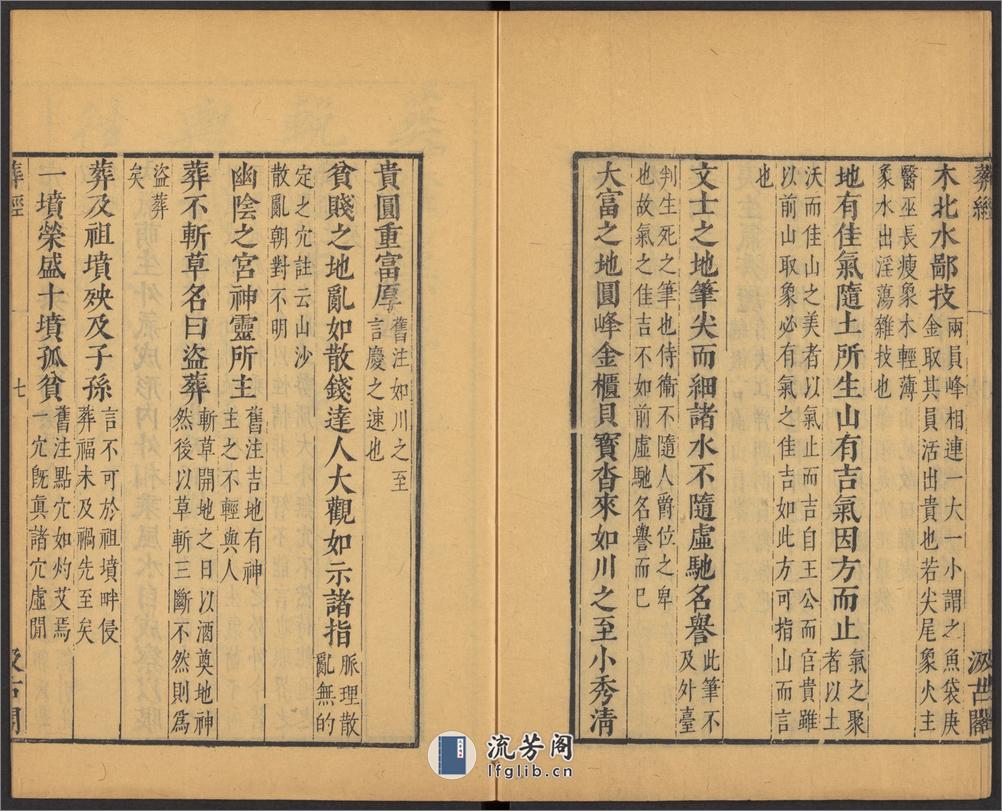 葬經
汲古閣
木北水鄙技
兩員峰相連一大一小謂之魚袋庚
金取其員活出貴也若尖尾象火主
醫巫長瘦象木輕薄
象水出淫蕩雜技也
地有佳氣隨土所生山有吉氣因方而止
氣之聚
者以土
沃而佳山之美者以氣止而吉自王公而官貴雖
以前山取象必有氣之佳吉如此方可指山而言
也
文士之地筆尖而細諸水不隨虛馳名譽
此筆不
及外臺
判生死之筆也侍衞不隨人爵位之卑
也故氣之佳吉不如前虛馳名譽而已
大富之地圓峰金櫃貝寶沓來如川之至小秀清
貴圓重富厚
舊注如川之至
言慶之速也
貧賤之地亂如散錢達人大觀如示諸指
脈理散
亂無的
定之穴註云山沙
散亂朝對不明
幽陰之宮神靈所主
舊注吉地有神
主之不輕與人
葬不斬草名曰盜葬
斬草開地之日以酒奠地神
然後以草斬三斷不然則爲
盜葬
矣
葬及祖墳殃及子孫
言不可於祖墳畔侵
葬福未及禍先至矣
一墳榮盛十墳孤貧
舊注點穴如灼艾焉
一穴旣眞諸穴虛閒
葬經
七
汲古閣
流芳阁
lfglib.cn